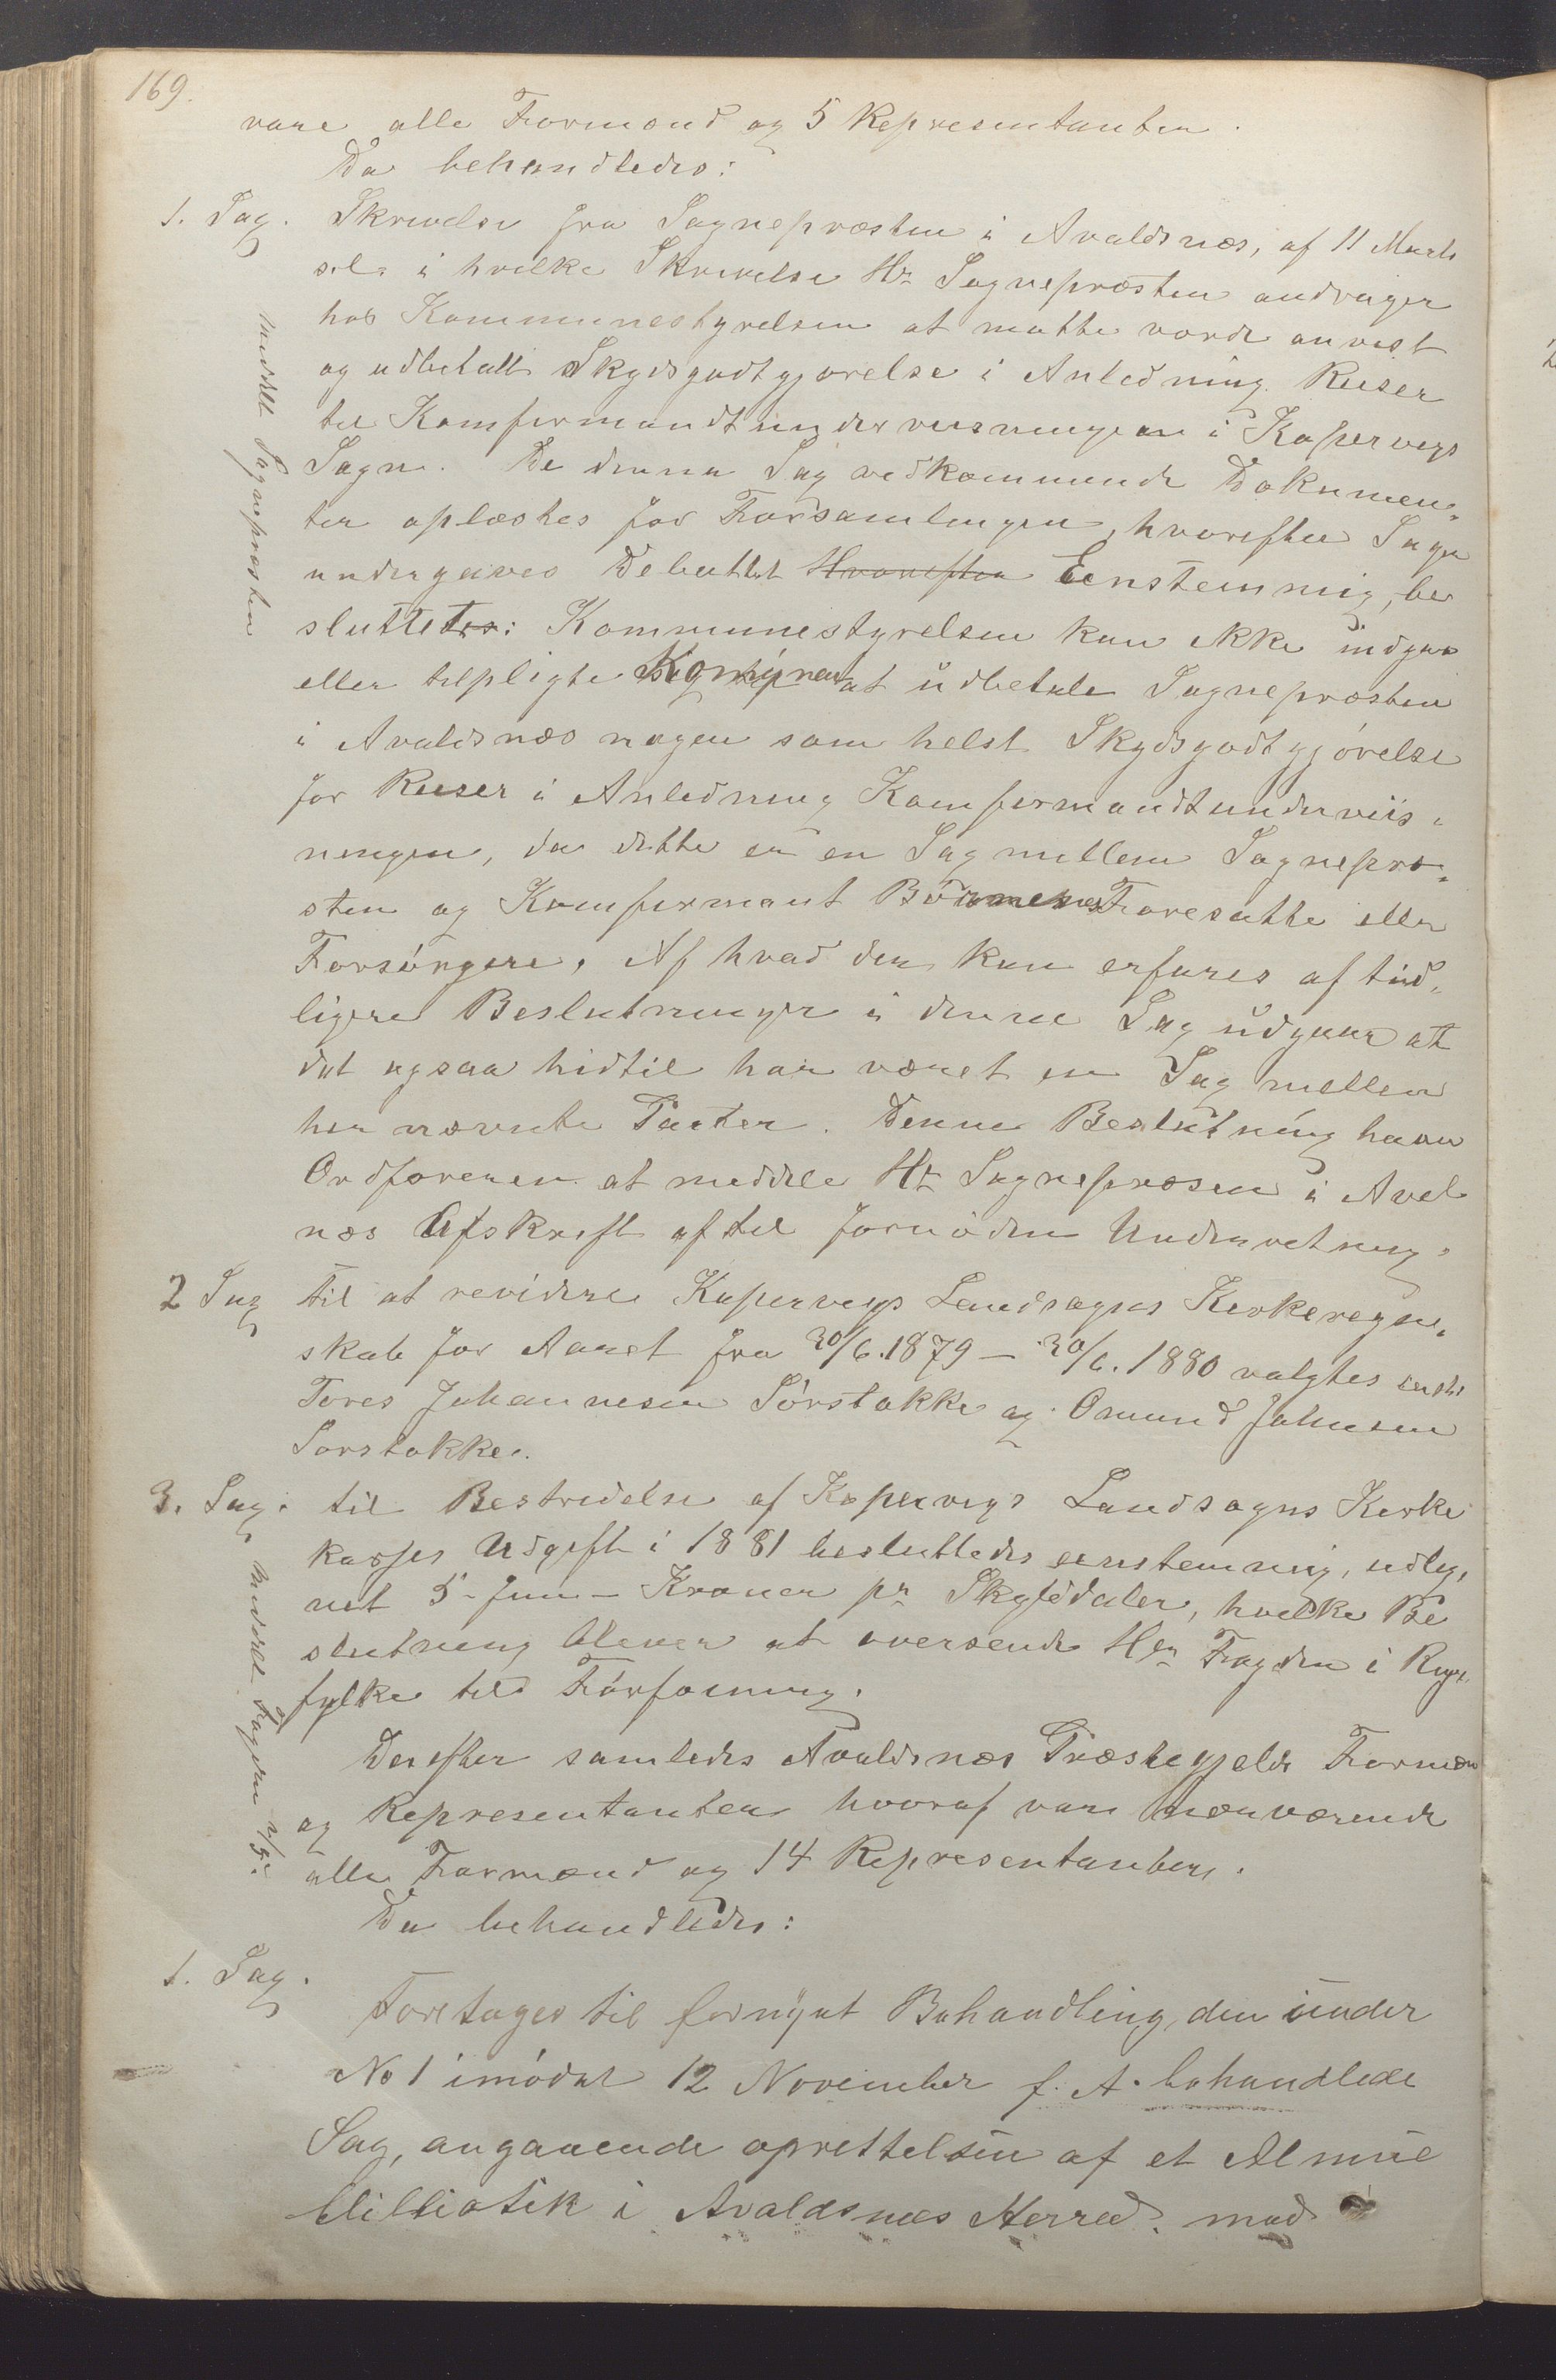 169.
vare alle Formænd og 5 Representanter.
Da behandledes:
1. Sag. Skrivelse fra Sognepræsten i Avaldsnæs, af 11 Marts
sl. i hvilke Skrivelse Hr Sognepræsten andrager
hos Kommunestyrelsen at maatte vorde anvist
og udbetalt Skydsgodtgjørelse i Anledning Reiser
til Komfirmandtundervisningen i Kopervigs
Sogn. De denne Sag vedkommende Dokumen-
ter oplæstes for Forsamlingen, hvorefter Sagen
undergaves Debattet Hvorefter Eenstemmig, be
sluttetes: Kommunestyrelsen kan ikke indgaa
eller tilpligte at udbetale Sognepræsten
i Avaldsnæs nogen som helst Skydsgodtgjörelse
for Reiser i Anledning Komfirmandtunderviis-
ningen, da dette er en Sag mellem Sognepræ-
sten og Komfirmant Börnenes Foresatte eller
Forsörgere. Af hvad der kan erfares af tid-
ligere Beslutninger i denne Sag udgaar at
det ogsaa hidtil har været en Sag mellem
her nævnte Parter. Denne Beslutning haver
Ordføreren at meddele Hr Sognepræsen i Aval
næs Afskrift af til fornöden Underretning.
2 Sag til at revidere Kopervigs Landsogns Kirkeregn-
skab for Aaret fra 30/6.1879 – 30/6.1880 valgtes enst.
Tores Johannesen Sörstokke og Omund Johnsen
Sørstokke.
3. Sag. til Bestridelse af Kopervigs Landsogns Kirke
kasses Udgift i 1881 besluttedes eenstemmig, udlig-
net 5 - fem - Kroner pr Skylddaler, hvilke Be
slutning bliver at oversende Hr Fogden i Ryf-
fylke til Forføining.
Derefter samledes Avaldsnæs Præstegjelds Formæn
og Representanter hvoraf vare nærværende
alle Formænd og 14 Representanter.
Da behandledes:
1. Sag.
Foretages til fornÿet Behandling, den under
No 1 imödet 12 November f. A. behandlede
Sag, angaaende oprettelsen af et Almue
bibliotek i Avaldsnæs Herred. med
meddelt Sognepræsten
meddelt Fogden